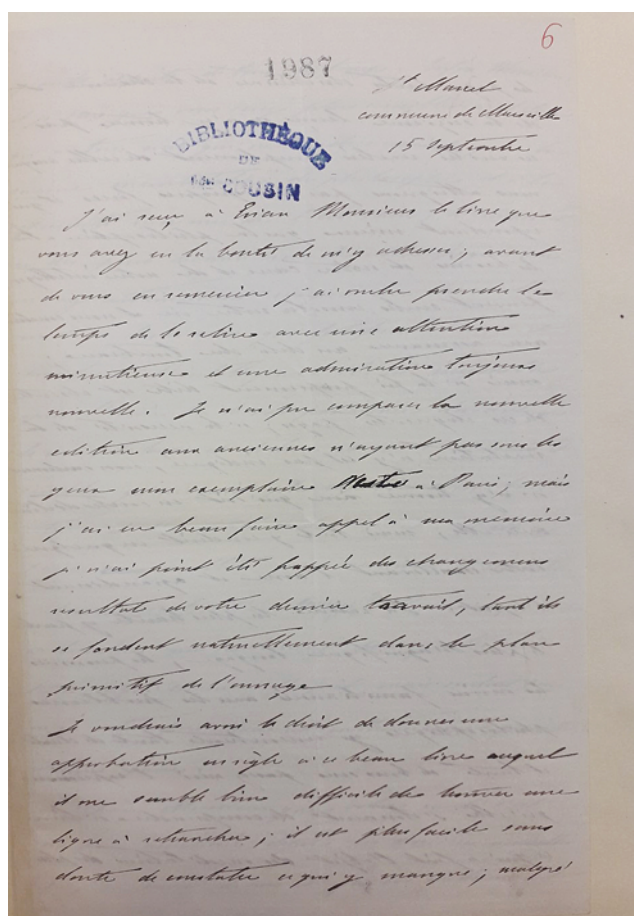 6
1987
St Marcel
commune de Marseille
15 Septembre
BIBLIOTHÈQUE
DE
COUSIN
J'ai reçu à Evian Monsieur le livre que
vous avez eu la bonté de m'y adresser ; avant
de vous en remercier j'ai voulu prendre le
temps de le relire avec une attention
minutieuse et une admiration toujours
nouvelle. Je n'ai pu comparer la nouvelle
edition aux anciennes n'ayant pas sous les
yeux mon exemplaire resté à Paris ; mais
j'ai eu beau faire appel à ma mémoire
je n'ai point été frappée des changemens
resultat de votre dernier travail, tant ils
se fondent naturellement dans le plan
primitif de l'ouvrage
Je voudrais avoir le droit de donner une
approbation en règle à ce beau livre auquel
il me semble bien difficile de trouver une
ligne à retrancher ; il est plus facile sans
doute de constater ce qui y manque ; malgré